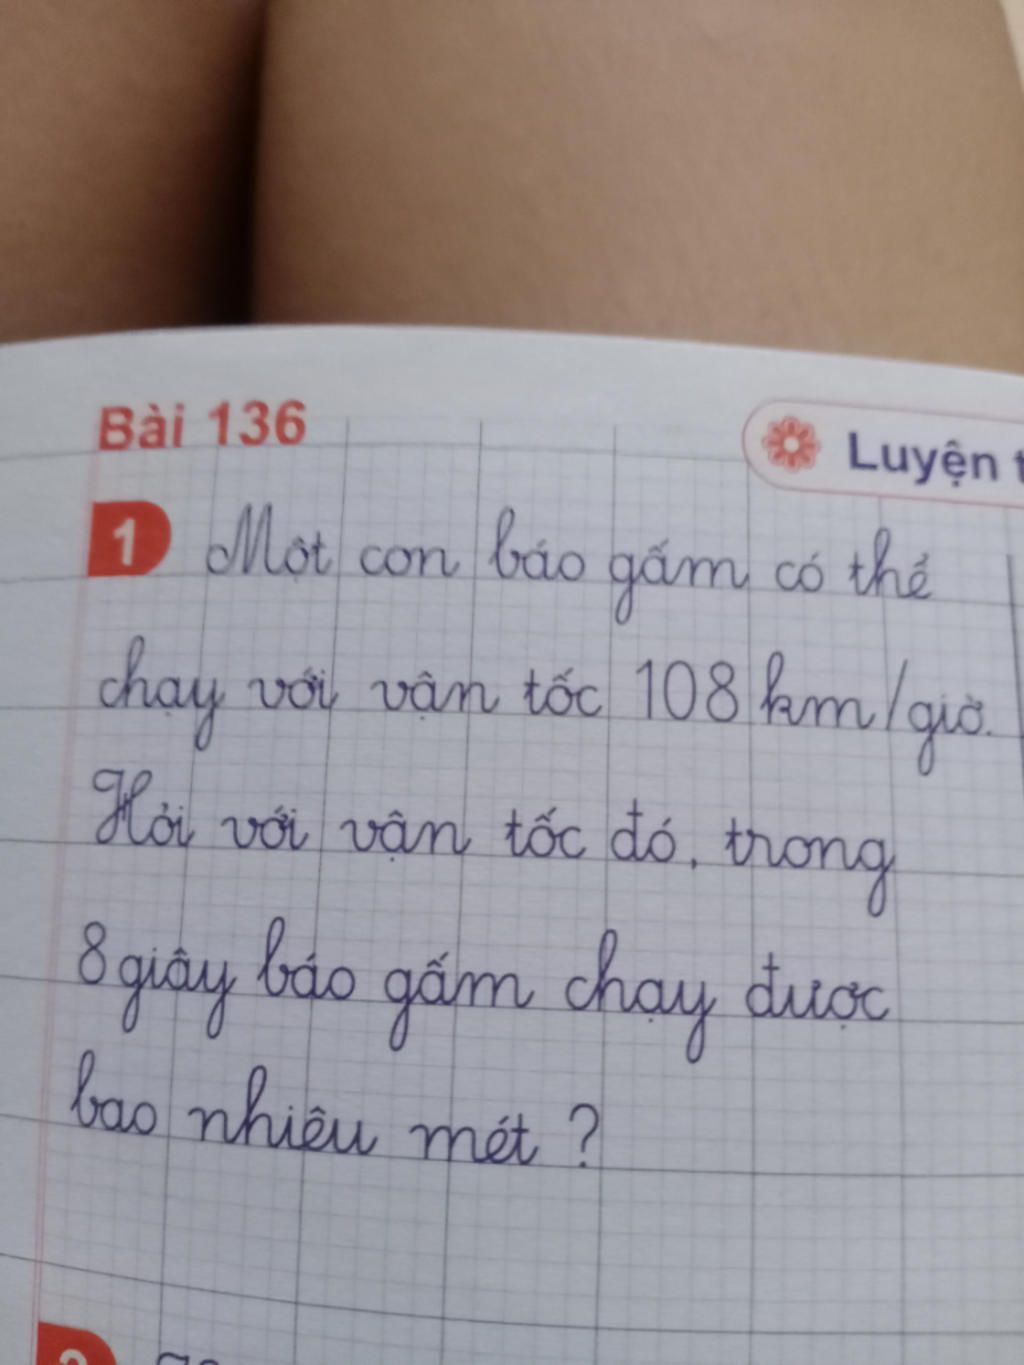 Bài 136
Luyện t
1 Một con báo gấm có thể
chạy với vận tốc 108 km/giờ.
Hỏi với vận tốc đó, trong
8 giây báo gấm chạy được
bao nhiêu mét ?
2